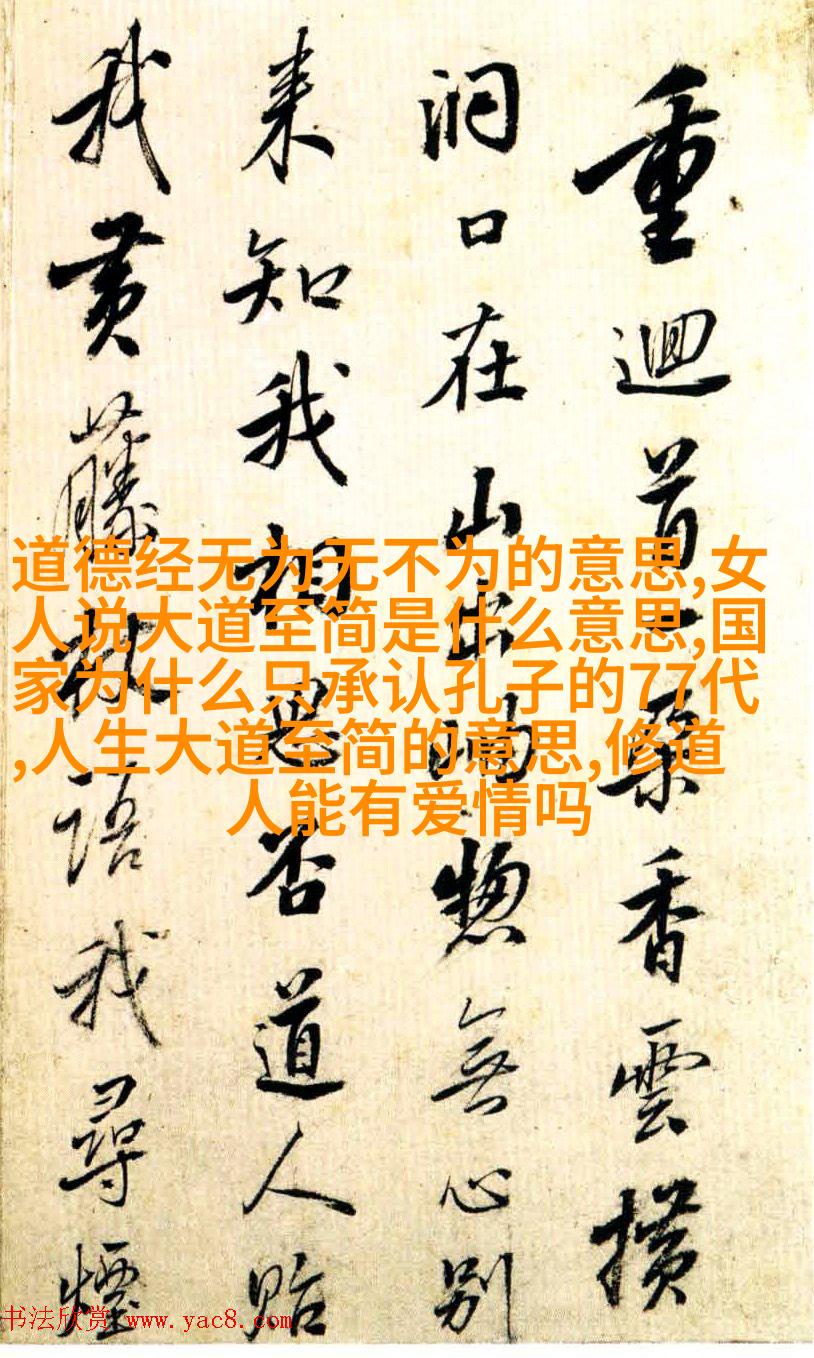 重迴首一朵香雲
洞口在山出岫惣無心別
来知我相思否道人貽
我黄藤杖語我尋煙
道德经无为无不为的意思,女
人说大道至简是什么意思,国
家为什么只承认孔子的77代
,人生大道至简的意思,修道
人能有爱情吗
书法欣赏 www.yac8.com